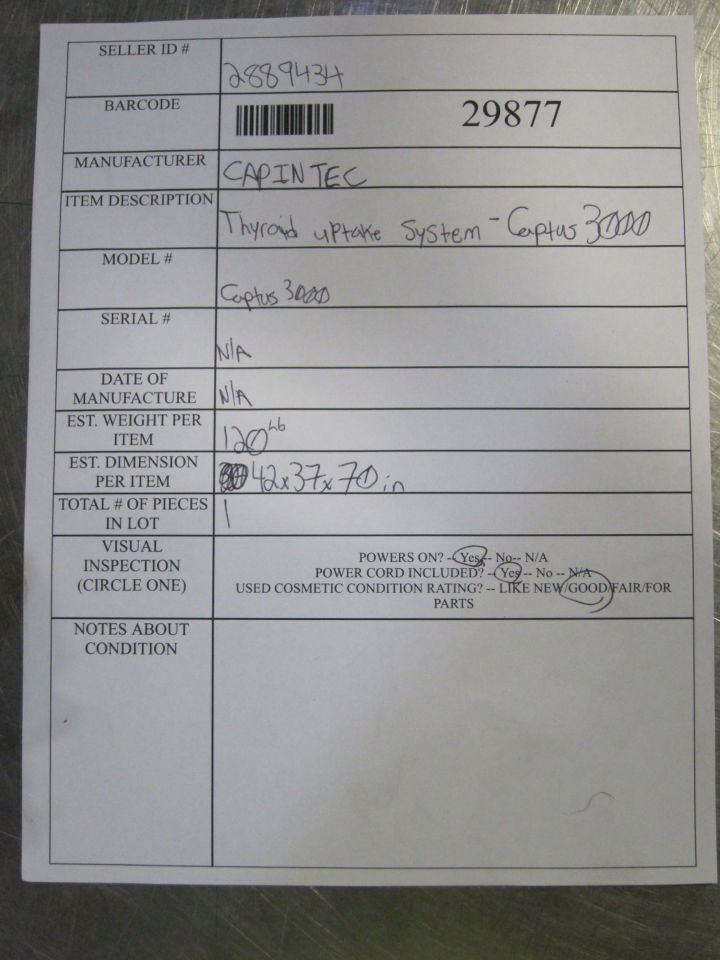 SELLER ID #
2889434
BARCODE
29877
MANUFACTURER
CAPINTEC
ITEM DESCRIPTION
Thyroid uptake System - Captus 3000
MODEL #
Captus 3000
SERIAL #
N/A
DATE OF
MANUFACTURE
N/A
EST. WEIGHT PER
ITEM
120 Lb
EST. DIMENSION
PER ITEM
42x37x70 in
TOTAL # OF PIECES
IN LOT
1
VISUAL
INSPECTION
(CIRCLE ONE)
POWERS ON? -- Yes -- No-- N/A
POWER CORD INCLUDED? -- Yes -- No -- N/A
USED COSMETIC CONDITION RATING? -- LIKE NEW/GOOD/FAIR/FOR
PARTS
NOTES ABOUT
CONDITION